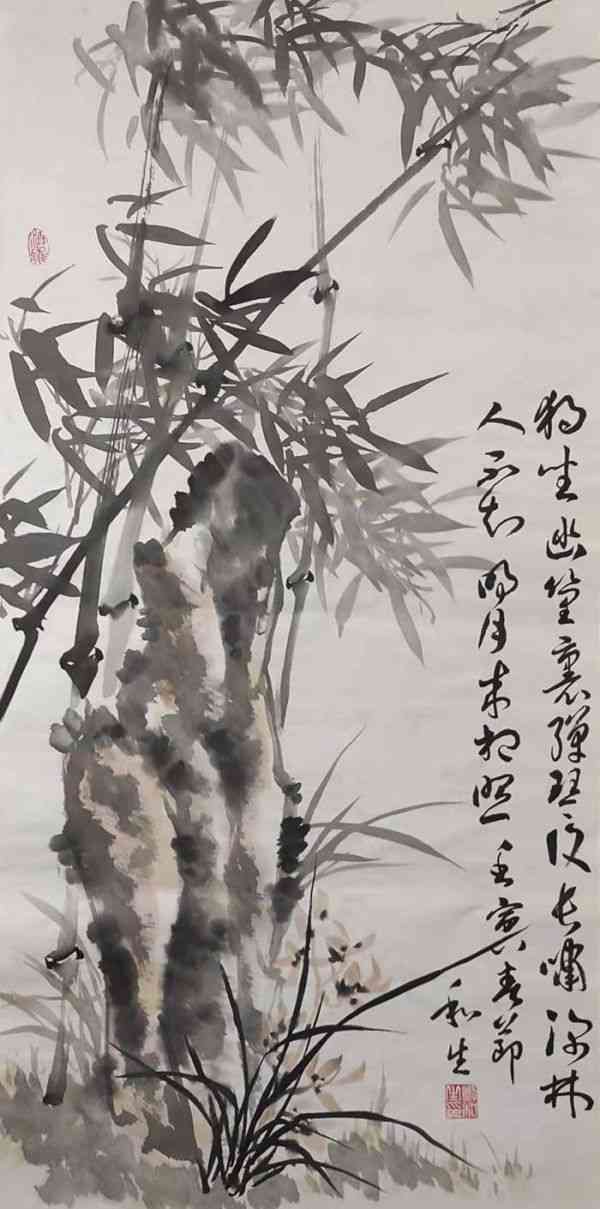 独坐幽篁裏彈琴復長嘯深林
人不知明月来相照 壬寅春節
和生